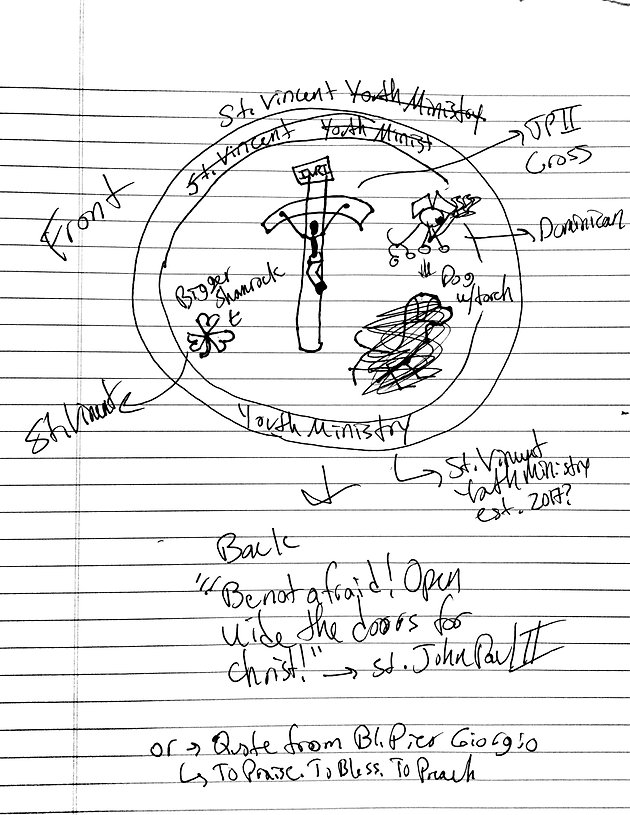 St. Vincent Youth Ministry
St. Vincent Youth Minist
JPII
Cross
INRI
Front
Dominican
Bigger
Shamrock
Dog
w/torch
St. Vincent
Youth Ministry
St. Vincent
Youth Ministry
est. 2017?
Back
"Be not afraid! Open
wide the doors for
Christ!" → St. John Paul II
or → Quote from Bl. Pier Giorgio
↳ To Praise. To Bless. To Preach